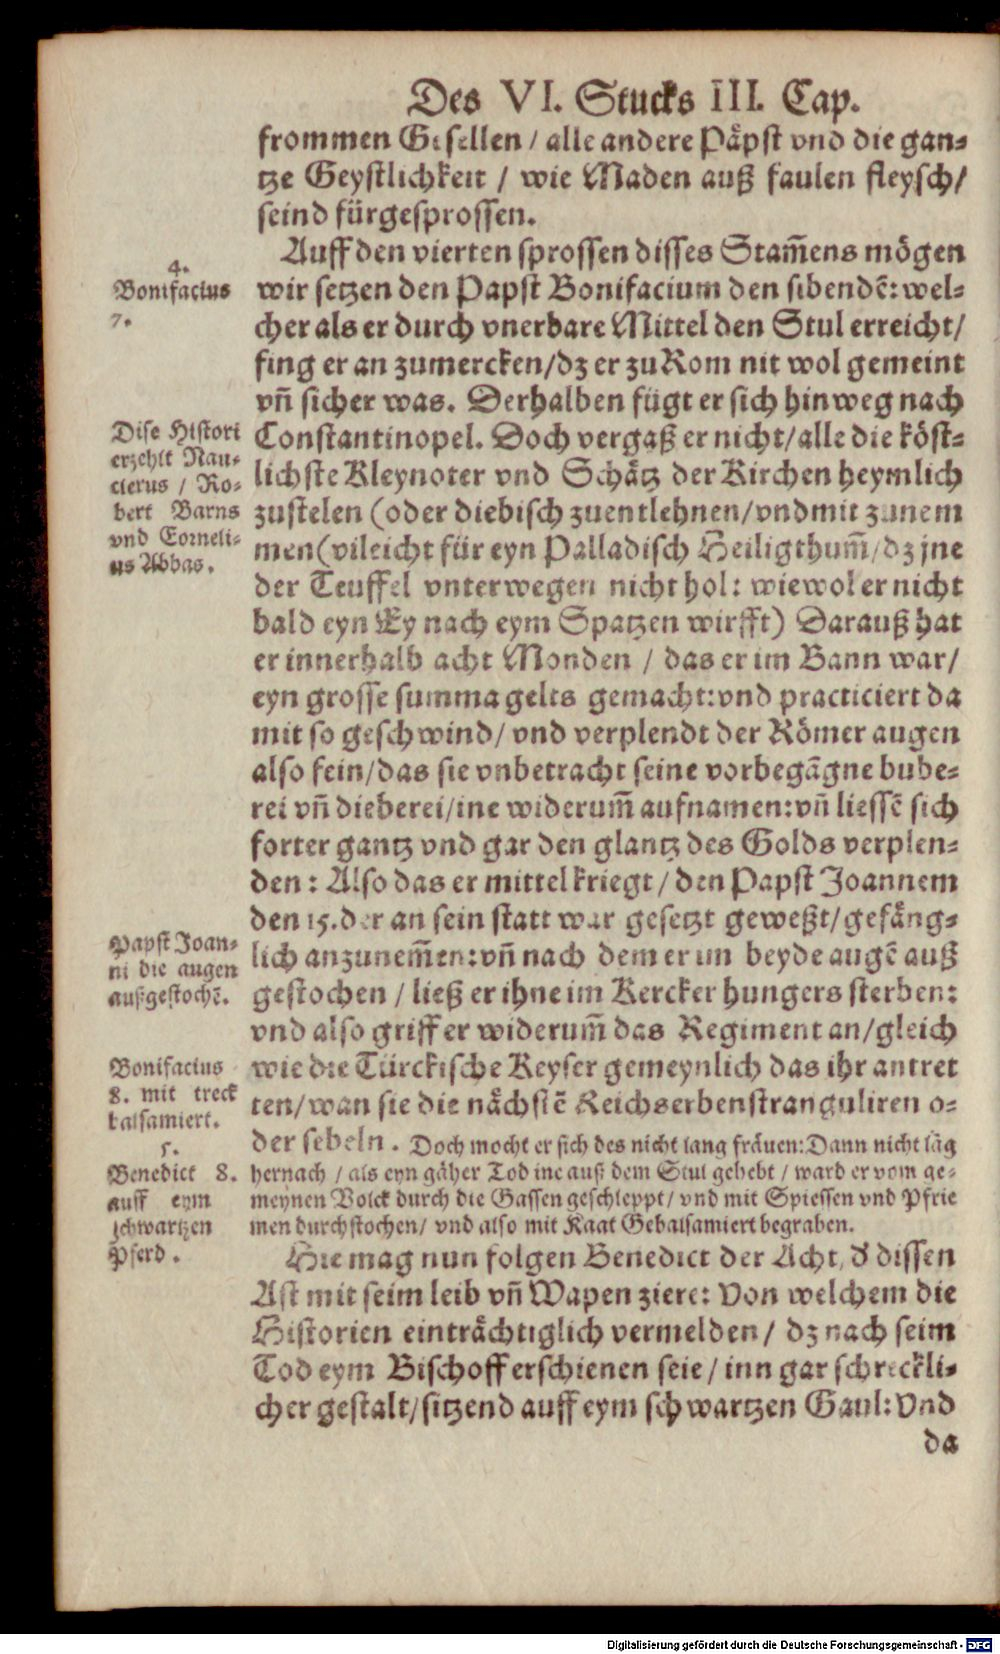 Des VI. Stucks III. Cap.
frommen Gesellen / alle andere Päpst vnd die gan-
tze Geystlichkeit / wie Maden auß faulen fleysch/
seind fürgesprossen.
Auff den vierten sprossen disses Stam̃ens mögen
4.
Bonifacius
7.
wir setzen den Papst Bonifacium den sibendẽ: wel-
cher als er durch vnerbare Mittel den Stul erreicht/
fing er an zumercken/dz er zu Rom nit wol gemeint
vñ sicher was. Derhalben fügt er sich hinweg nach
Dise Histori
erzehlt Nau-
clerus / Ro-
bert Barns
vnd Corneli-
us Abbas.
Constantinopel. Doch vergaß er nicht/alle die köst-
lichste Kleynoter vnd Schätz der Kirchen heymlich
zustelen (oder diebisch zuentlehnen/vnd mit zunem
men(vileicht für eyn Palladisch Heiligthum̃/dz jne
der Teuffel vnterwegen nicht hol: wiewol er nicht
bald eyn Ey nach eym Spatzen wirfft) Darauß hat
er innerhalb acht Monden / das er im Bann war/
eyn grosse summa gelts gemacht: vnd practiciert da
mit so geschwind/ vnd verplendt der Römer augen
also fein/das sie vnbetracht seine vorbegãgne bube-
rei vñ dieberei/ine widerum̃ aufnamen: vñ liessẽ sich
forter gantz vnd gar den glantz des Golds verplen-
den: Also das er mittel kriegt/ den Papst Joannem
den 15. der an sein statt war gesetzt geweßt/gefäng-
Papst Joan-
ni die augen
außgestochẽ.
lich anzunem̃en: vñ nach dem er im beyde augẽ auß
gestochen / ließ er ihne im Kercker hungers sterben:
vnd also griff er widerum̃ das Regiment an/gleich
Bonifacius
8. mit treck
balsamiert.
wie die Türckische Keyser gemeynlich das ihr antret
ten/wan sie die nächstẽ Reichserben stranguliren o-
der sebeln. Doch mocht er sich des nicht lang fräuen: Dann nicht lãg
5.
Benedict 8.
auff eym
schwartzen
Pferd.
hernach / als eyn gäher Tod ine auß dem Stul gehebt / ward er vom ge-
meynen Volck durch die Gassen geschleppt/ vnd mit Spiessen vnd Pfrie
men durchstochen/ vnd also mit Kaat Gebalsamiert begraben.
Hie mag nun folgen Benedict der Acht, d' dissen
Ast mit seim leib vñ Wapen ziere: Von welchem die
Historien einträchtiglich vermelden/ dz nach seim
Tod eym Bischoff erschienen seie/ inn gar schreckli-
cher gestalt/sitzend auff eym schwartzen Gaul: Vnd
da
Digitalisierung gefördert durch die Deutsche Forschungsgemeinschaft - DFG